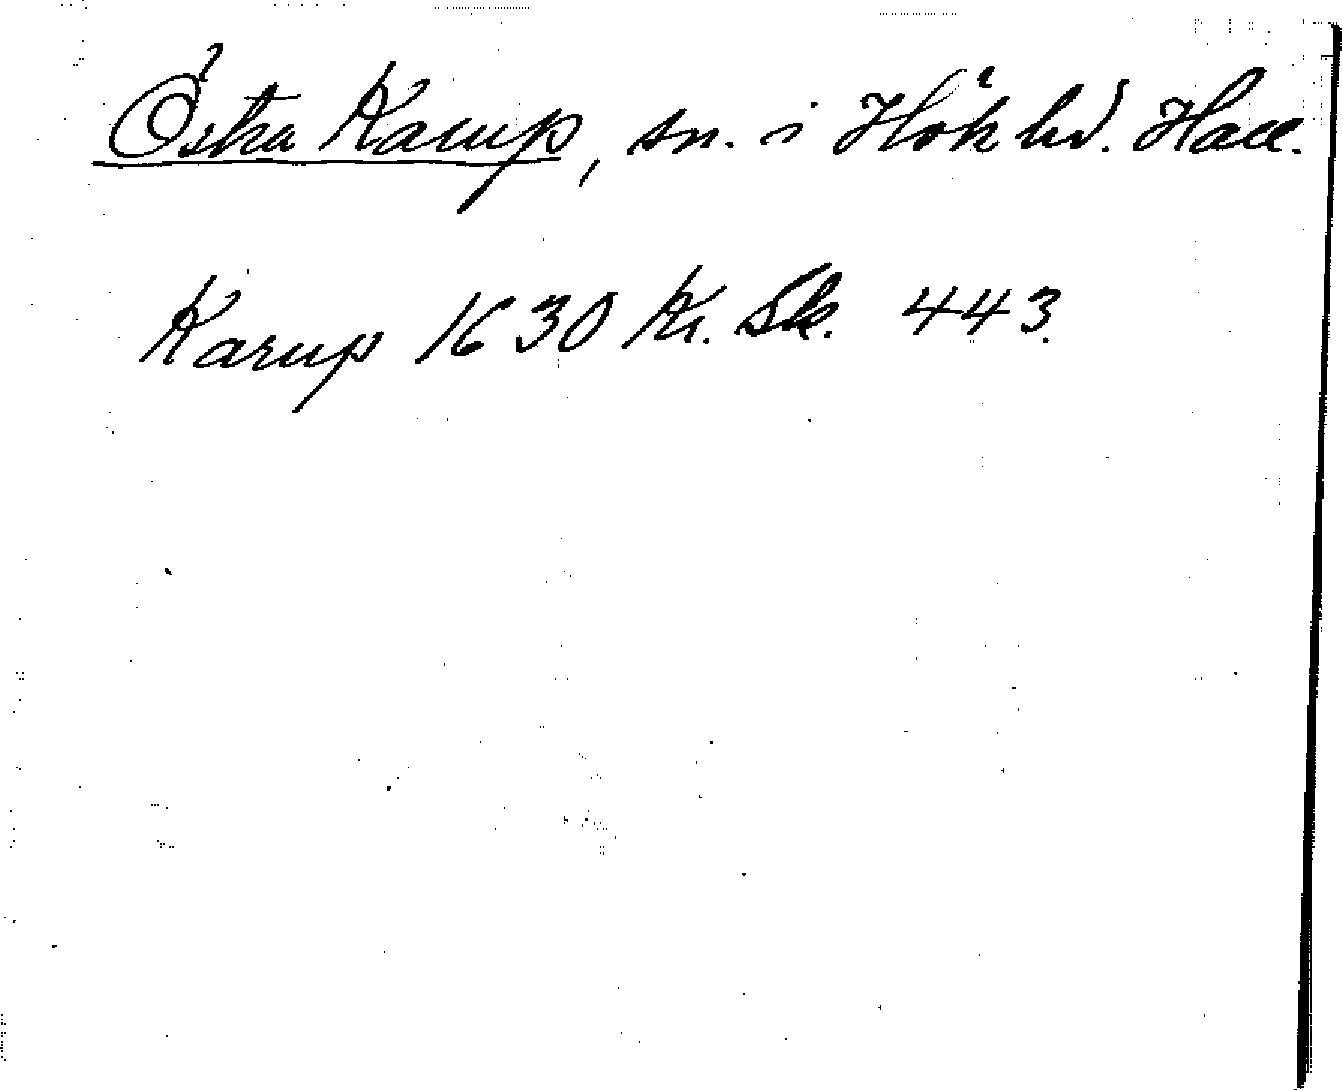 Östra Karup, sn. i Höks hd. Hall.
Karup 1630 Kr. Sk. 443.